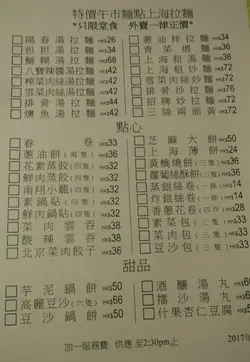 特價午市麵點上海拉麵
"只限堂食 外賣一律正價"
陽春湯拉麵 HK$26
担担湯拉麵 HK$34
鱔糊湯拉麵 HK$68
八寶辣醬湯拉麵 HK$42
榨菜肉絲湯拉麵 HK$42
雪菜肉絲湯拉麵 HK$42
排骨湯拉麵 HK$44
燻魚湯拉麵 HK$42
蔥油拌拉麵 HK$34
青菜煨麵 HK$38
上海粗湯麵 HK$38
上海粗炒麵 HK$72
雪菜肉絲炒麵 HK$72
排骨炒拉麵 HK$72
招牌炒拉麵 HK$72
三絲兩面黃 HK$72
點心
春卷 HK$33
蔥油餅(兩隻) HK$36
花素蒸餃(四隻) HK$38
鮮肉蒸餃(四隻) HK$38
南翔小籠(四隻) HK$38
素鍋貼(四隻) HK$38
鮮肉鍋貼(四隻) HK$38
菜肉雲吞 HK$38
酸辣雲吞 HK$38
北京菜肉餃子 HK$36
芝麻大餅 HK$50
上海薄餅 HK$24
黃橋燒餅(三隻) HK$36
蘿蔔絲酥餅(三隻) HK$36
蒸銀絲卷(一條) HK$14
炸銀絲卷(一條) HK$14
香蔥花卷(四件)
素菜包(三隻)
菜肉包(三隻)
豆沙包(三隻)
甜品
芋泥鍋餅 HK$50
高麗豆沙(六隻) HK$66
豆沙鍋餅 HK$50
酒釀湯丸
擂沙湯丸
什果杏仁豆腐
加一服務費 供應至2:30pm止
2017年